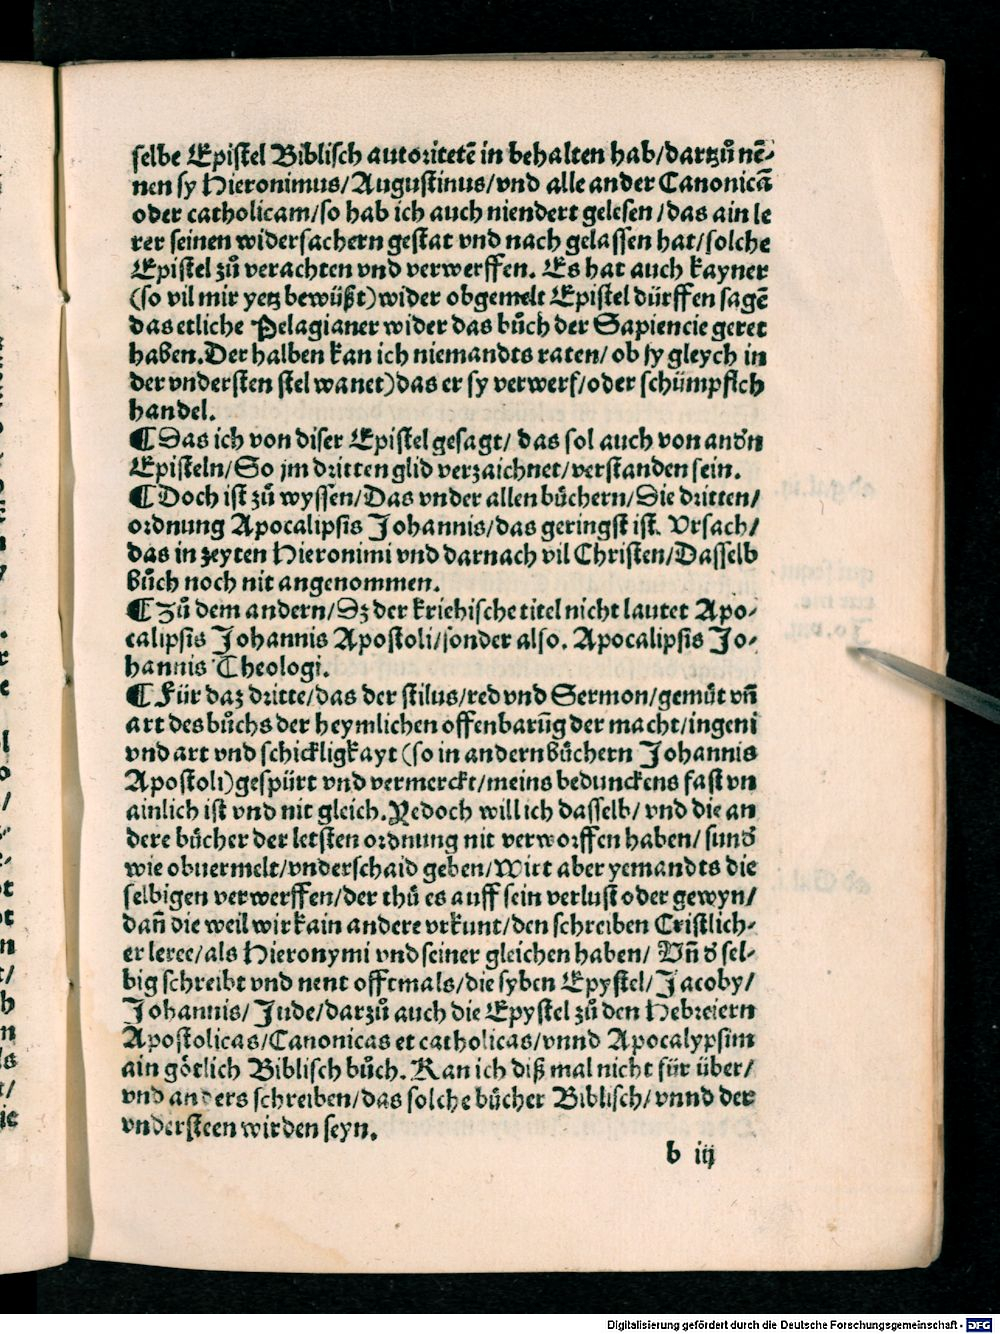 selbe Epistel Biblisch autoritetē in behalten hab/dartzů nē-
nen sy Hieronimus/Augustinus/vnd alle ander Canonicā
oder catholicam/so hab ich auch niendert gelesen/das ain le
rer seinen widersachern gestat vnd nach gelassen hat/solche
Epistel zů verachten vnd verwerffen. Es hat auch kayner
(so vil mir yetz bewüßt) wider obgemelt Epistel dürffen sagē
das etliche Pelagianer wider das bůch der Sapiencie geret
haben. Der halben kan ich niemandts raten/ ob sy gleych in
der vndersten stel wanet) das er sy verwerf/oder schümpflich
handel.
¶ Das ich von diser Epistel gesagt/ das sol auch von andn̄
Episteln/So jm dritten glid verzaichnet/verstanden sein.
¶ Doch ist zů wyssen/Das vnder allen bůchern/Die dritten/
ordnung Apocalipsis Johannis/das geringst ist. Vrsach/
das in zeyten Hieronimi vnd darnach vil Christen/Dasselb
bůch noch nit angenommen.
¶ Zů dem andern/Dz der kriehische titel nicht lautet Apo-
calipsis Johannis Apostoli/sonder also. Apocalipsis Jo-
hannis Theologi.
¶ Für daz dritte/das der stilus/red vnd Sermon/gemůt vn̄
art des bůchs der heymlichen offenbarūg der macht/ingeni
vnd art vnd schickligkayt (so in andern bůchern Johannis
Apostoli) gespürt vnd vermerckt/meins bedunckens fast vn
ainlich ist vnd nit gleich. Yedoch will ich dasselb/ vnd die an
dere bůcher der letsten ordnung nit verworffen haben/ sund̄
wie obuermelt/vnderschaid geben/Wirt aber yemandts die
selbigen verwerffen/der thů es auff sein verlust oder gewyn/
dan̄ die weil wir kain andere vrkunt/den schreiben Cristlich-
er leree/als Hieronymi vnd seiner gleichen haben/ Vn̄ d̄ sel-
big schreibt vnd nent offtmals/die syben Epystel/Jacoby/
Johannis/ Jude/darzů auch die Epystel zů den Hebreiern
Apostolicas/Canonicas et catholicas/vnnd Apocalypsim
ain götlich Biblisch bůch. Kan ich diß mal nicht für über/
vnd anders schreiben/das solche bůcher Biblisch/vnnd der
vndersteen wirden seyn.
b iij
Digitalisierung gefördert durch die Deutsche Forschungsgemeinschaft - DFG